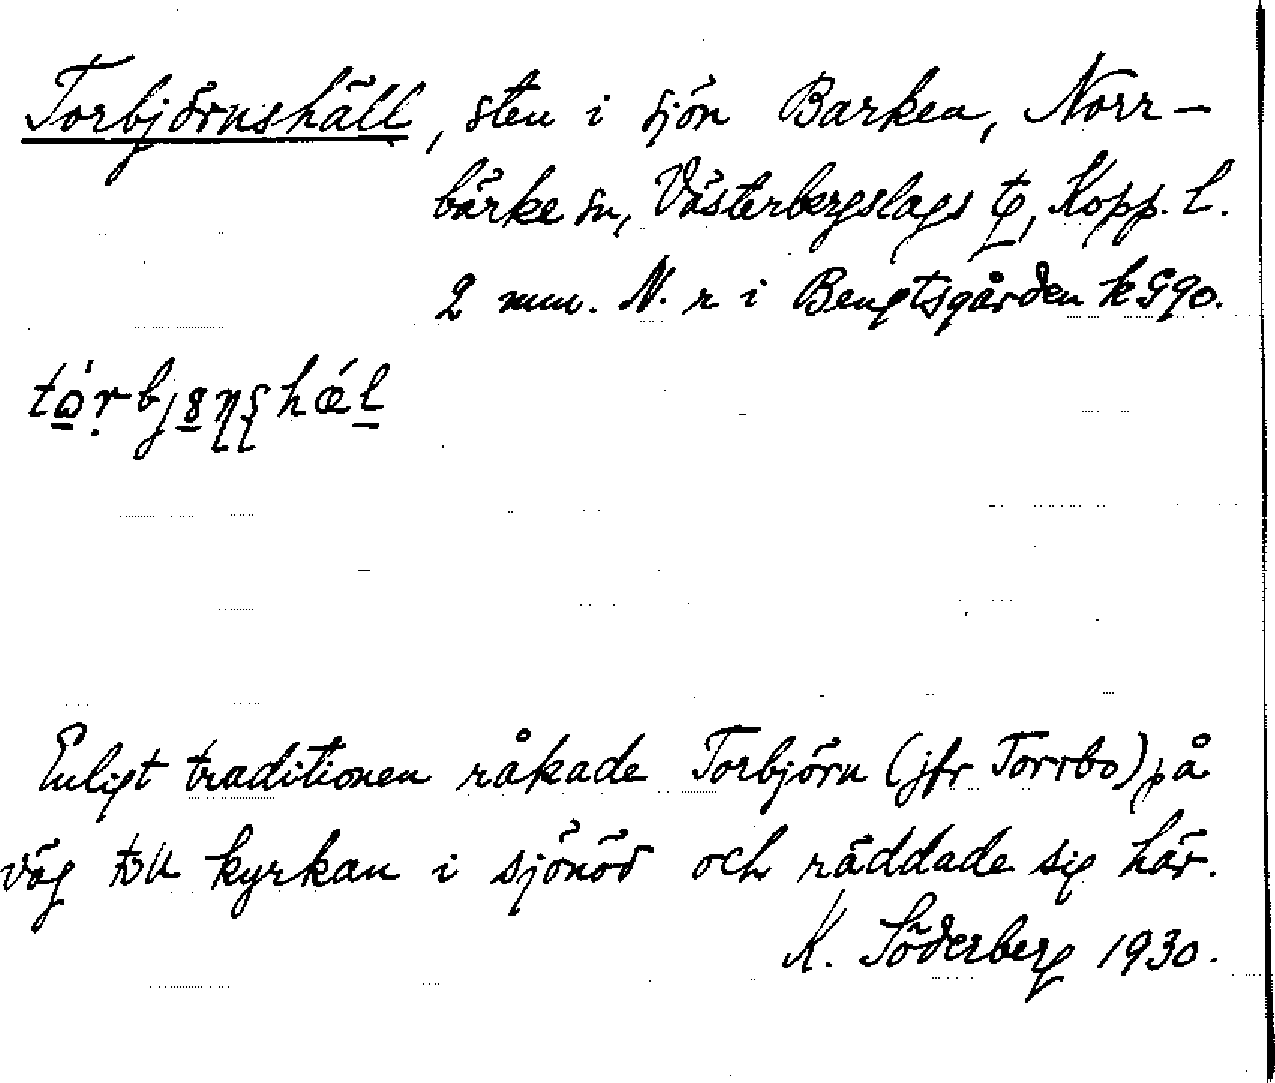 Torbjörnshäll, sten i sjön Barken, Norr-
bärke sn, Västerbergslags tg, Kopp. l.
2 mm. N. r i Bengtsgården k 590.
Enligt traditionen råkade Torbjörn (jfr Torrbo) på
väg till kyrkan i sjönöd och räddade sig här.
K. Söderberg 1930.